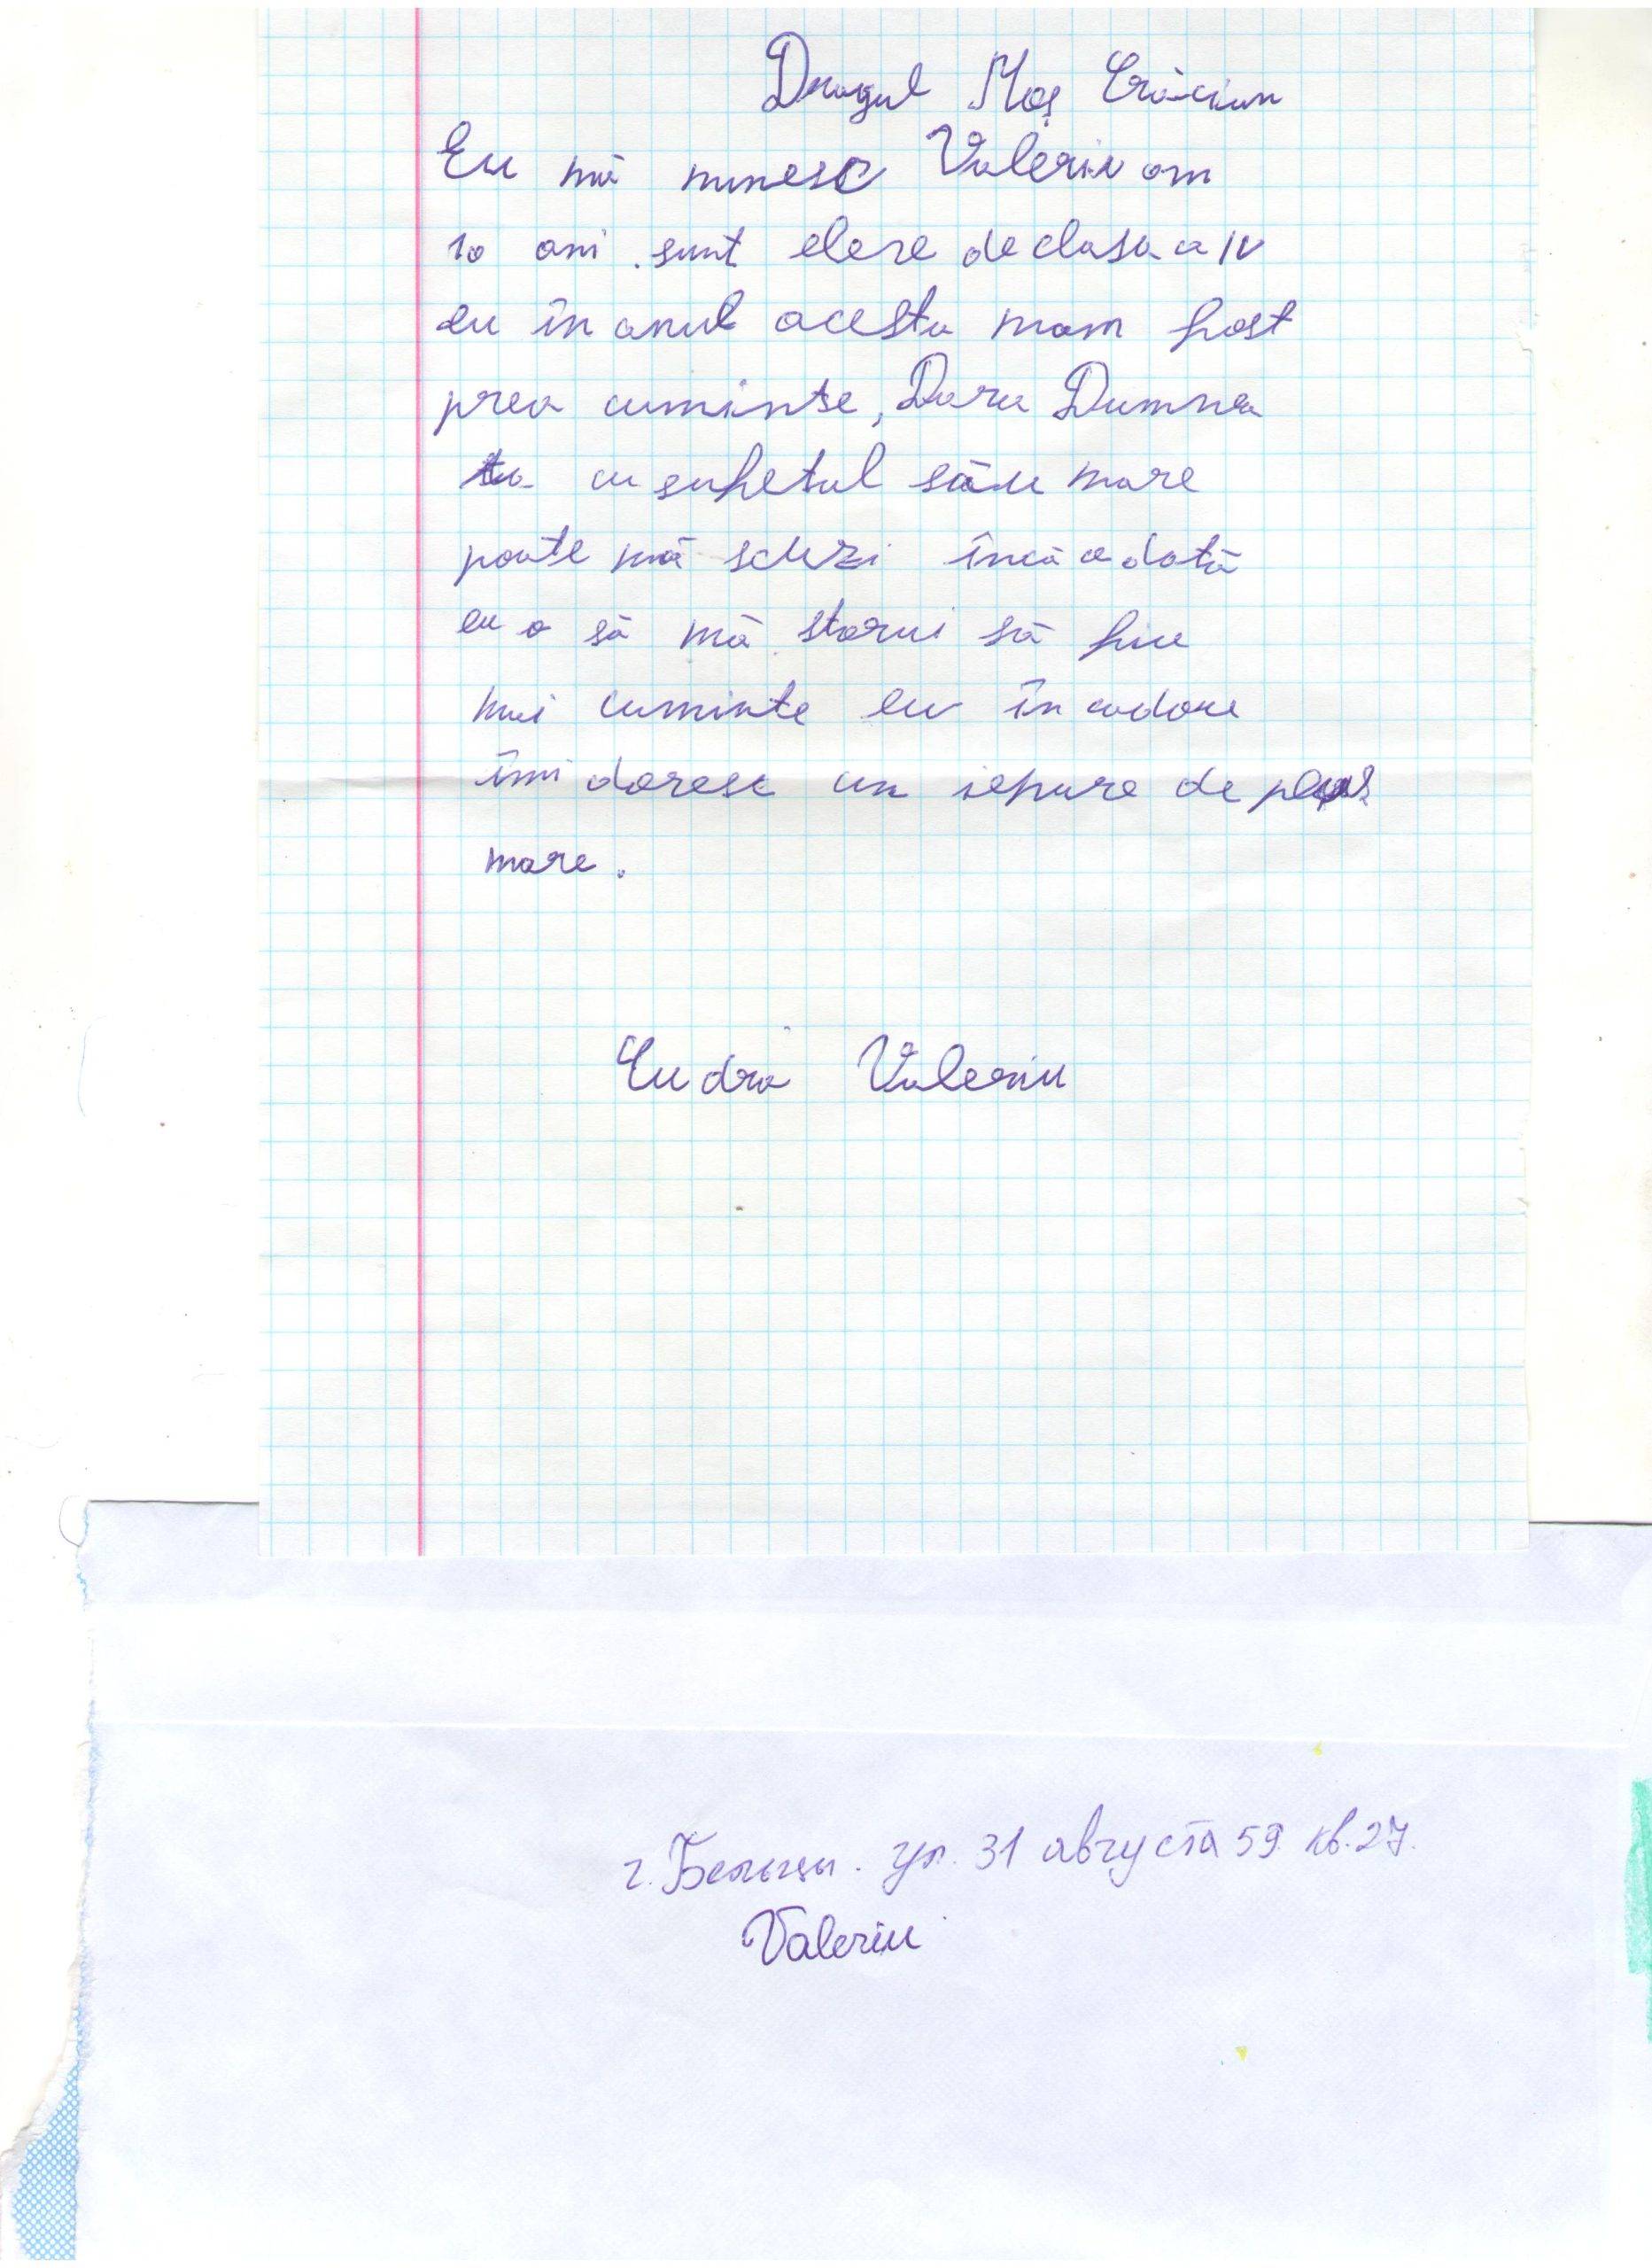 Dragul Moș Crăciun
Eu mă numesc Valeriu am
10 ani. sunt eleve de clasa a IV
eu în anul acesta mam fost
prea cuminte, Dara Dumnea
ta cu sufletul său mare
poate mă scuzi încă o dată
eu o să mă starui să fiu
mai cuminte eu în cadou
îmi doresc un iepure de pluș
mare.
Valeriu
г. Бельцы. ул. 31 августа 59 кв. 27.
Valeriu